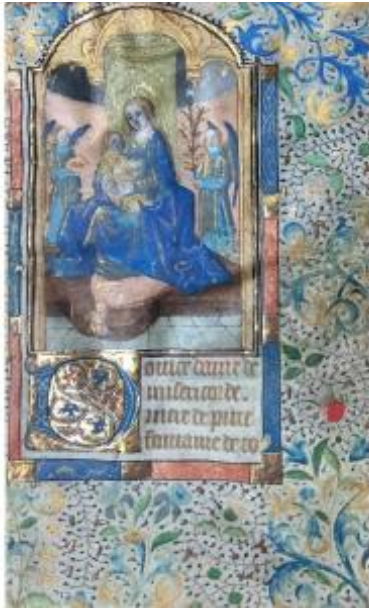 Doulce dame de
misericorde.
mere de pitie
fontaine de to